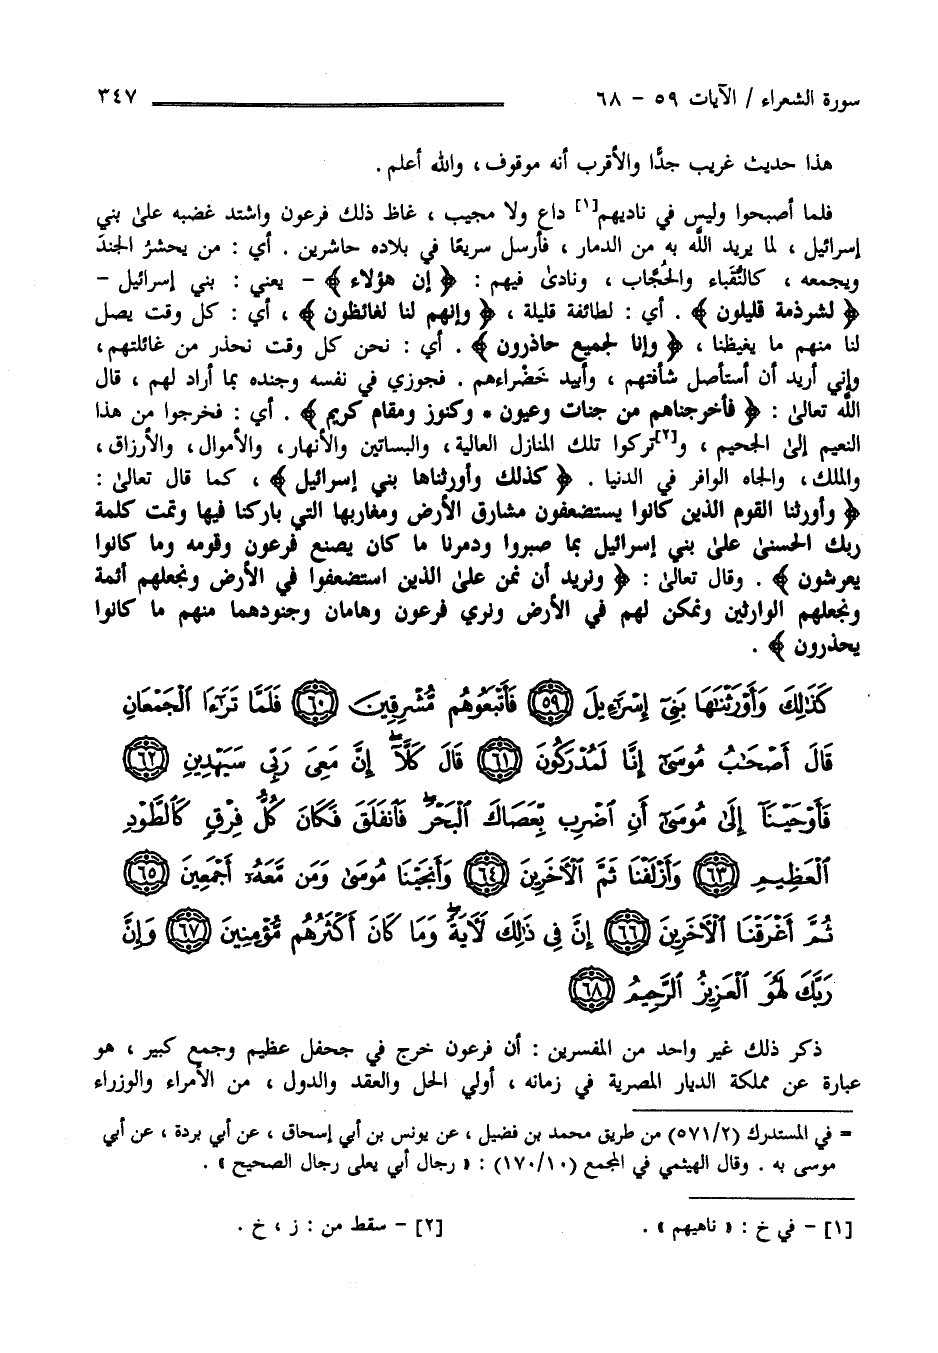 سورة الشعراء / الآيات ٥٩ - ٦٨ ٣٤٧
هذا حديث غريب جدًّا والأقرب أنه موقوف ، والله أعلم .
فلما أصبحوا وليس في ناديهم[١] داع ولا مجيب ، غاظ ذلك فرعون واشتد غضبه علىٰ بني
إسرائيل ، لما يريد اللَّه به من الدمار ، فأرسل سريعًا في بلاده حاشرين . أي : من يحشرُ الجندَ
ويجمعه ، كالنُّقَباء والحُجَّاب ، ونادىٰ فيهم : ﴿ إن هؤلاء ﴾ - يعني : بني إسرائيل -
﴿ لشرذمة قليلون ﴾ . أي : لطائفة قليلة ، ﴿ وإنهم لنا لغائظون ﴾ ، أي : كل وقت يصل
لنا منهم ما يغيظنا ، ﴿ وإنا لجميع حاذرون ﴾ . أي : نحن كل وقت نحذر من غائلتهم ،
وإني أريد أن أستأصل شأفتهم ، وأبيد خَضْراءهم . فجوزي في نفسه وجنده بما أراد لهم ، قال
اللَّه تعالىٰ : ﴿ فأخرجناهم من جنات وعيون * وكنوز ومقام كريم ﴾ . أي : فخرجوا من هذا
النعيم إلىٰ الجحيم ، و[٢]تركوا تلك المنازل العالية ، والبساتين والأنهار ، والأموال ، والأرزاق ،
والملك ، والجاه الوافر في الدنيا . ﴿ كذلك وأورثناها بني إسرائيل ﴾ ، كما قال تعالىٰ :
﴿ وأورثنا القوم الذين كانوا يستضعفون مشارق الأرض ومغاربها التي باركنا فيها وتمت كلمة
ربك الحسنىٰ علىٰ بني إسرائيل بما صبروا ودمرنا ما كان يصنع فرعون وقومه وما كانوا
يعرشون ﴾ . وقال تعالىٰ : ﴿ ونريد أن نمن علىٰ الذين استضعفوا في الأرض ونجعلهم أئمة
ونجعلهم الوارثين ونمكن لهم في الأرض ونري فرعون وهامان وجنودهما منهم ما كانوا
يحذرون ﴾ .
كَذَٰلِكَ وَأَوْرَثْنَٰهَا بَنِىٓ إِسْرَٰٓءِيلَ ٥٩ فَأَتْبَعُوهُم مُّشْرِقِينَ ٦٠ فَلَمَّا تَرَٰٓءَا ٱلْجَمْعَانِ
قَالَ أَصْحَٰبُ مُوسَىٰٓ إِنَّا لَمُدْرَكُونَ ٦١ قَالَ كَلَّآ ۖ إِنَّ مَعِىَ رَبِّى سَيَهْدِينِ ٦٢
فَأَوْحَيْنَآ إِلَىٰ مُوسَىٰٓ أَنِ ٱضْرِب بِّعَصَاكَ ٱلْبَحْرَ ۖ فَٱنفَلَقَ فَكَانَ كُلُّ فِرْقٍ كَٱلطَّوْدِ
ٱلْعَظِيمِ ٦٣ وَأَزْلَفْنَا ثَمَّ ٱلْءَاخَرِينَ ٦٤ وَأَنجَيْنَا مُوسَىٰ وَمَن مَّعَهُۥٓ أَجْمَعِينَ ٦٥
ثُمَّ أَغْرَقْنَا ٱلْءَاخَرِينَ ٦٦ إِنَّ فِى ذَٰلِكَ لَءَايَةً ۖ وَمَا كَانَ أَكْثَرُهُم مُّؤْمِنِينَ ٦٧ وَإِنَّ
رَبَّكَ لَهُوَ ٱلْعَزِيزُ ٱلرَّحِيمُ ٦٨
ذكر ذلك غير واحد من المفسرين : أن فرعون خرج في جحفل عظيم وجمع كبير ، هو
عبارة عن مملكة الديار المصرية في زمانه ، أولي الحل والعقد والدول ، من الأمراء والوزراء
= في المستدرك (٥٧١/٢) من طريق محمد بن فضيل ، عن يونس بن أبي إسحاق ، عن أبي بردة ، عن أبي
موسى به . وقال الهيثمي في المجمع (١٧٠/١٠) : « رجال أبي يعلى رجال الصحيح » .
[١] - في خ : « ناهيهم » . [٢] - سقط من : ز ، خ .